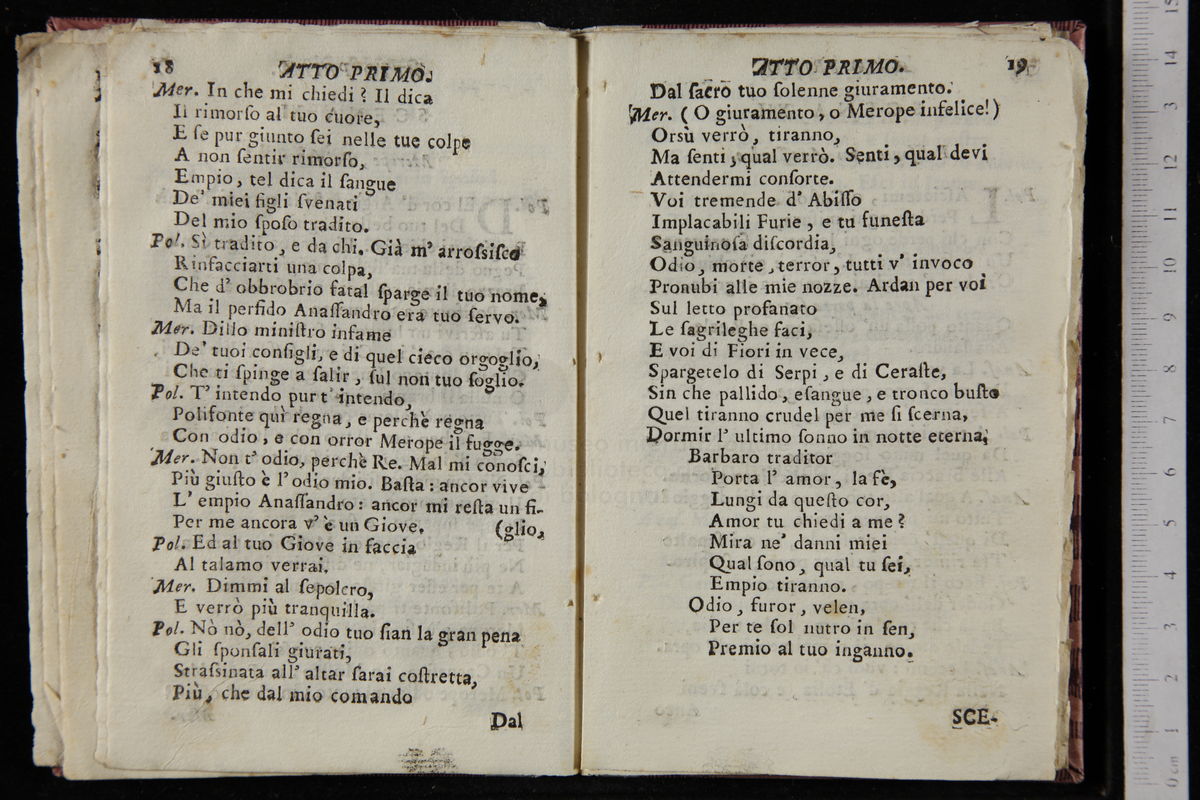 18 ATTO PRIMO.
Mer. In che mi chiedi? Il dica
Il rimorſo al tuo cuore,
E ſe pur giunto ſei nelle tue colpe
A non ſentir rimorſo,
Empio, tel dica il ſangue
De' miei figli ſvenati
Del mio ſpoſo tradito.
Pol. Sì tradito, e da chi. Già m' arroſsiſco
Rinfacciarti una colpa,
Che d' obbrobrio fatal ſparge il tuo nome,
Ma il perfido Anaſſandro era tuo ſervo.
Mer. Dillo miniſtro infame
De' tuoi conſigli, e di quel cieco orgoglio,
Che ti ſpinge a ſalir, ſul non tuo ſoglio.
Pol. T' intendo pur t' intendo,
Polifonte quì regna, e perchè regna
Con odio, e con orror Merope il fugge.
Mer. Non t' odio, perchè Re. Mal mi conoſci,
Più giuſto è l' odio mio. Baſta: ancor vive
L' empio Anaſſandro: ancor mi reſta un fi-
Per me ancora v' è un Giove. (glio,
Pol. Ed al tuo Giove in faccia
Al talamo verrai.
Mer. Dimmi al ſepolcro,
E verrò più tranquilla.
Pol. Nò nò, dell' odio tuo ſian la gran pena
Gli ſponſali giurati,
Straſsinata all' altar ſarai coſtretta,
Più, che dal mio comando
Dal
ATTO PRIMO. 19
Dal ſacro tuo ſolenne giuramento.
Mer. (O giuramento, o Merope infelice!)
Orsù verrò, tiranno,
Ma ſenti, qual verrò. Senti, qual devi
Attendermi conſorte.
Voi tremende d' Abiſſo
Implacabili Furie, e tu funeſta
Sanguinoſa diſcordia,
Odio, morte, terror, tutti v' invoco
Pronubi alle mie nozze. Ardan per voi
Sul letto profanato
Le ſagrileghe faci,
E voi di Fiori in vece,
Spargetelo di Serpi, e di Ceraſte,
Sin che pallido, eſangue, e tronco buſto
Quel tiranno crudel per me ſi ſcerna,
Dormir l' ultimo ſonno in notte eterna;
Barbaro traditor
Porta l' amor, la fè,
Lungi da queſto cor,
Amor tu chiedi a me?
Mira ne' danni miei
Qual ſono, qual tu ſei,
Empio tiranno.
Odio, furor, velen,
Per te ſol nutro in ſen,
Premio al tuo inganno.
SCE-